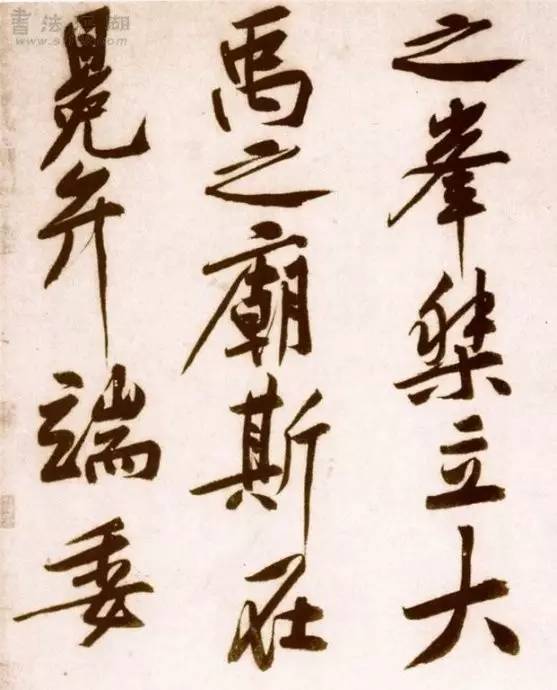 之峯桀立大
禹之廟斯在
冕弁端委
書法江湖